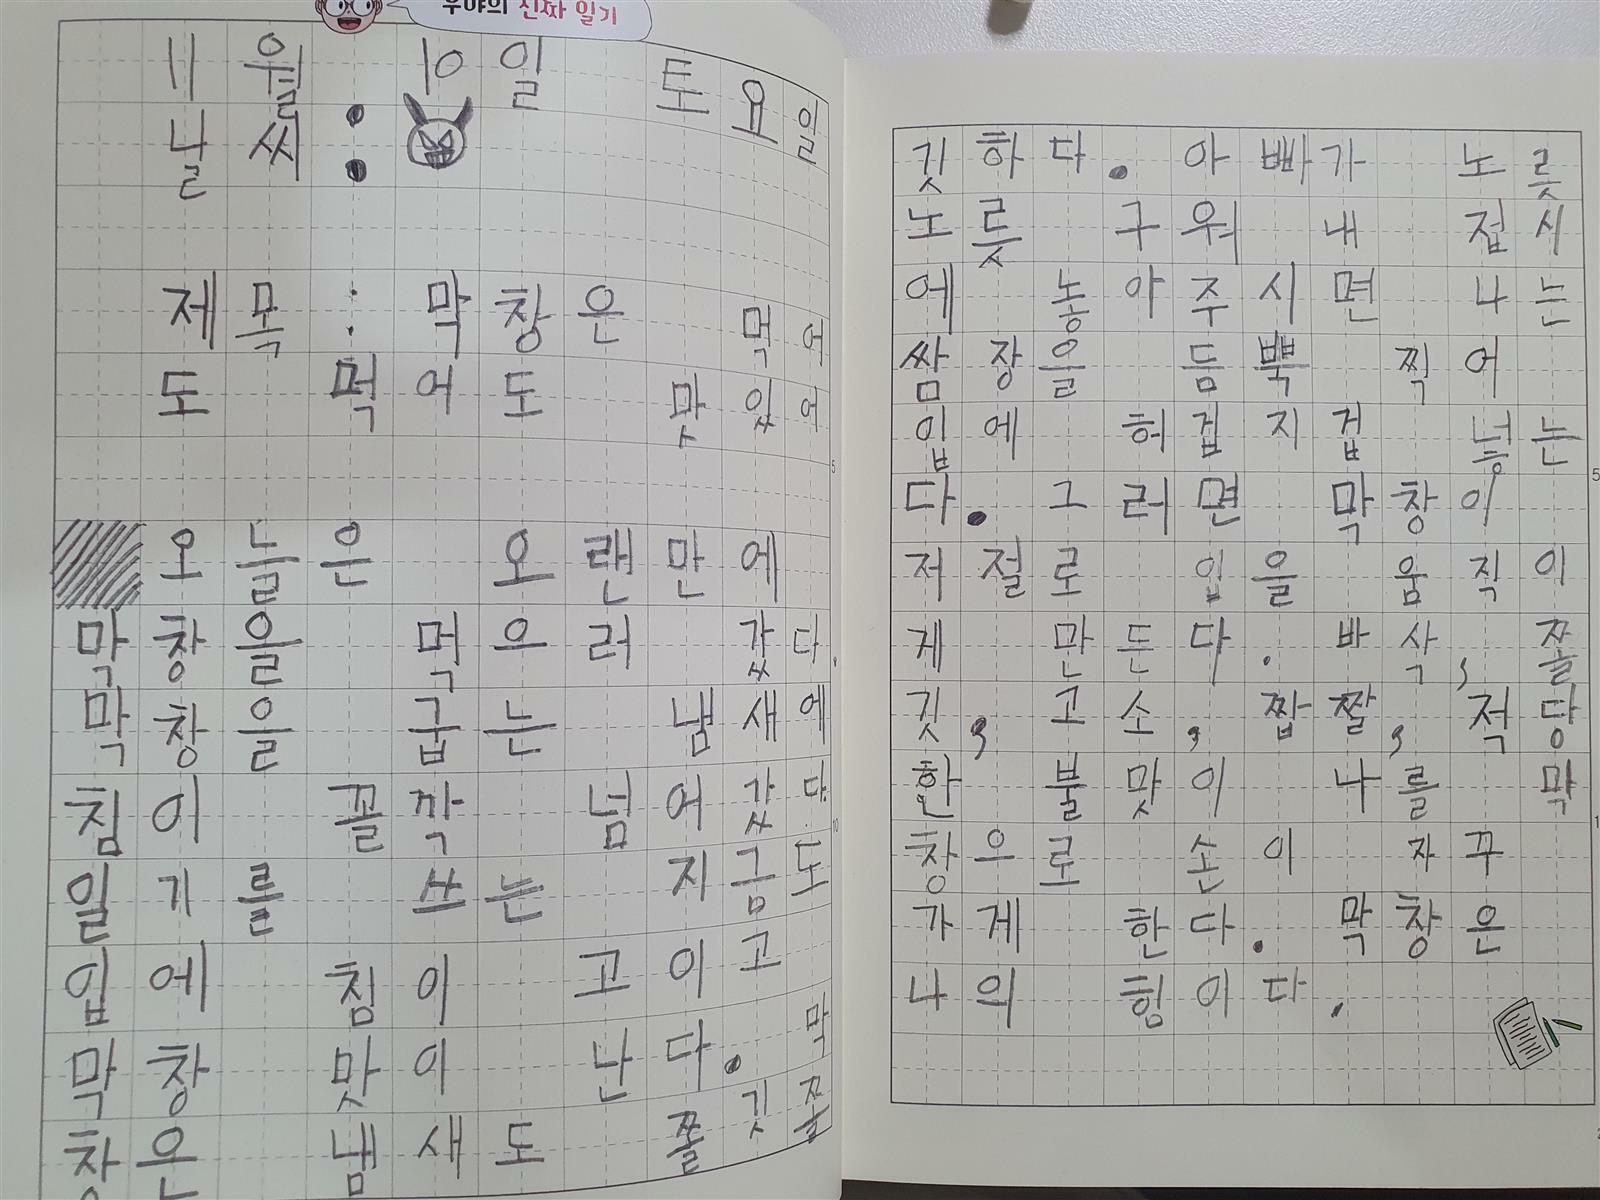 우야의 진짜 일기
11월 10일 토요일
날씨:
제목: 막창은 먹어
도 먹어도 맛있어
오늘은 오랜만에
막창을 먹으러 갔다.
막창을 굽는 냄새에
침이 꼴깍 넘어갔다.
일기를 쓰는 지금도
입에 침이 고이고
막창 맛이 난다. 막
창은 냄새도 쫄깃쫄
깃하다. 아빠가 노릇
노릇 구워 내 접시
에 놓아주시면 나는
쌈장을 듬뿍 찍어
입에 허겁지겁 넣는
다. 그러면 막창이
저절로 입을 움직이
게 만든다. 바삭, 쫄
깃, 고소, 짭짤, 적당
한 불맛이 나를 막
창으로 손이 자꾸
가게 한다. 막창은
나의 힘이다.
5
10
5
1